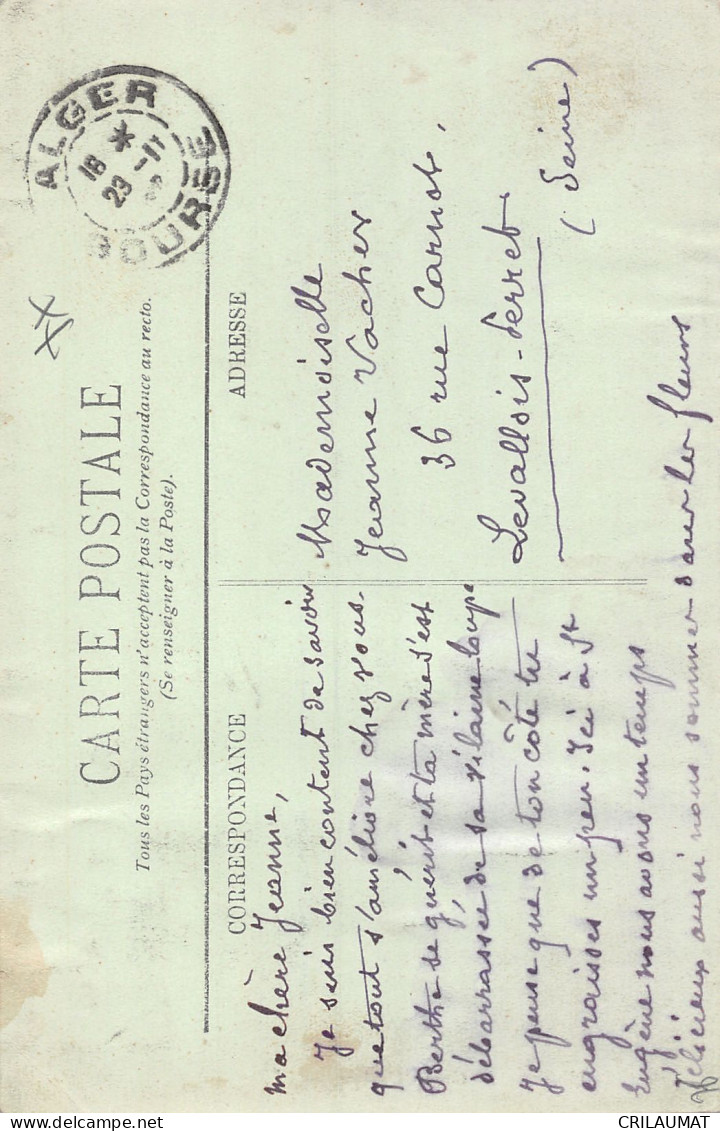 CARTE POSTALE
Tous les Pays étrangers n'acceptent pas la Correspondance au recto.
(Se renseigner à la Poste).
ALGER
18 *
23 -11
BOURSE
CORRESPONDANCE
ma chère Jeanne,
Je suis bien content de savoir
que tout s'améliore chez vous.
Berthe se guérit et ta mère s'est
débarrassée de sa vilaine loupe
Je pense que de ton côté tu
engraisses un peu. Ici à St
Eugène nous avons un temps
délicieux aussi nous sommes dans les fleurs
ADRESSE
Mademoiselle
Jeanne Vacher
36 rue Carnot,
Levallois-Perret
(Seine)
CRILAUMAT